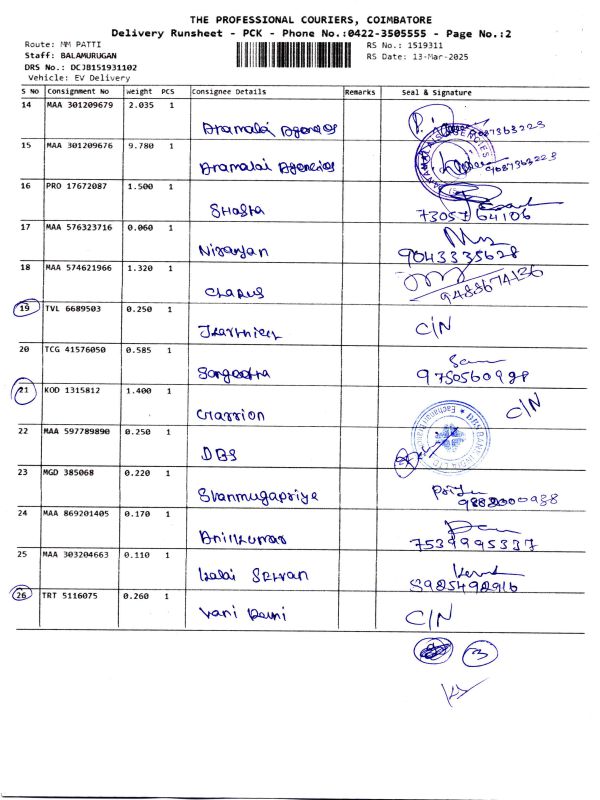 THE PROFESSIONAL COURIERS, COIMBATORE
Delivery Runsheet - PCK - Phone No.:0422-3505555 - Page No.:2
Route: MM PATTI RS No.: 1519311
Staff: BALAMURUGAN RS Date: 13-Mar-2025
DRS No.: DCJB151931102
Vehicle: EV Delivery
S No Consignment No weight PCS Consignee Details Remarks Seal & Signature
14 MAA 301209679 2.035 1
15 MAA 301209676 9.780 1
16 PRO 17672087 1.500 1
Shasta 73057 64106
17 MAA 576323716 0.060 1
Niranjan 9043335628
18 MAA 574621966 1.320 1
9488674136
19 TVL 6689503 0.250 1
C/N
20 TCG 41576050 0.585 1
Sangeetha
21 KOD 1315812 1.400 1
C/N
22 MAA 597789890 0.250 1
DBS
23 MGD 385068 0.220 1
Shanmugapriya
24 MAA 869201405 0.170 1
Anilkumar 7539995337
25 MAA 303204663 0.110 1
Kalai Selvan
26 TRT 5116075 0.260 1
Vani C/N